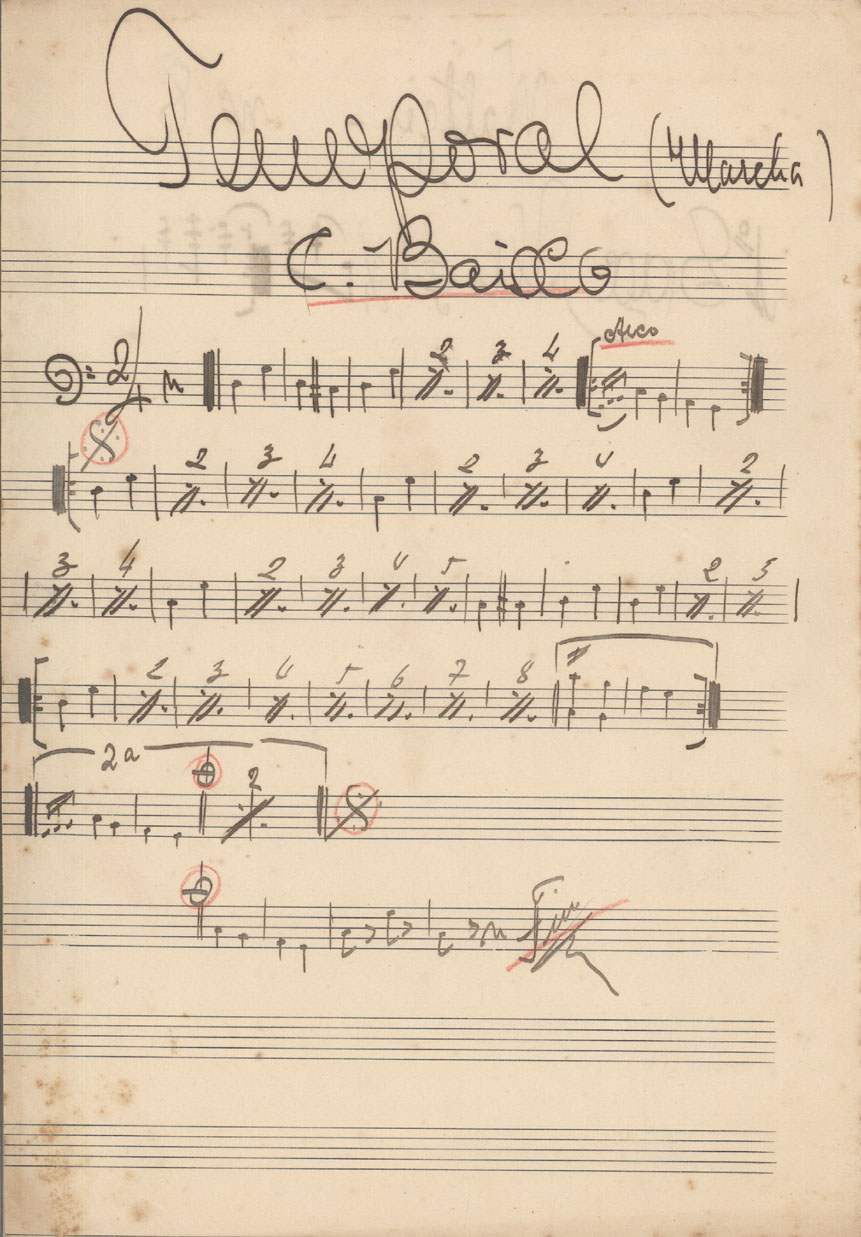 Temporal (Marcha)
C. Baicco
2/4
2 3 4 Arco
2 3 4 2 3 4 2
3 4 2 3 4 5 2 3
2 3 4 5 6 7 8
2a 2
Fin